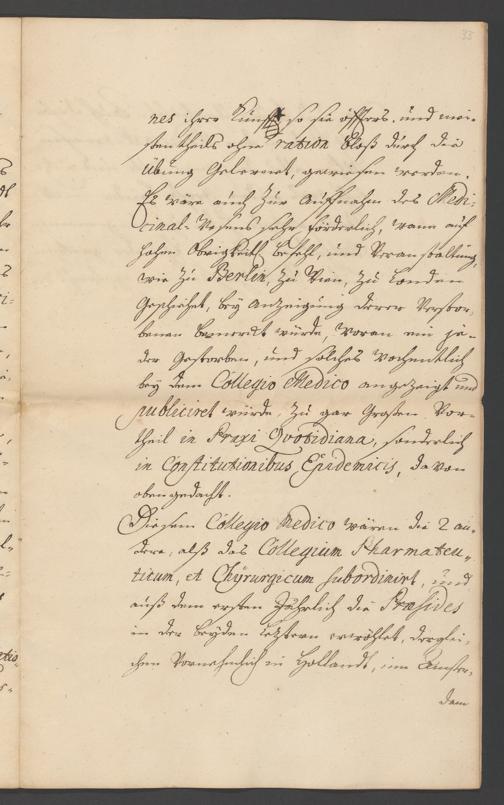 33
nes ihrer Kunst so sie öffters, und mei-
stentheils ohne ration bloß durch die
übung gelernet, gewiesen werden.
Es wäre auch zur auffnahm des Medi-
cinal-Wesens sehr förderlich, wann auf
hohen Obrigkeitl. befehl, und Veranstaltung,
wie zu Berlin, zu Wien, zu Londen
geschiehet, bey anzeigung derer Verstor-
benen bemerckt würde, woran ein je-
der gestorben, und solches wochentlich
bey dem Collegio Medico angezeigt und
publiciret würde, zu gar großen Vor-
theil in Praxi Quotidiana, sonderlich
in Constitutionibus Epidemicis, davon
oben gedacht.
Diesem Collegio Medico wären die 2 an-
dere, alß das Collegium Pharmaceu-
ticum, et Chyrurgicum subordinirt, und
auß dem ersten Jährlich die Præsides
in der beyden letztern erwöhlet, derglei-
chen Vornehmlich in Hollandt, im Amster-
dam